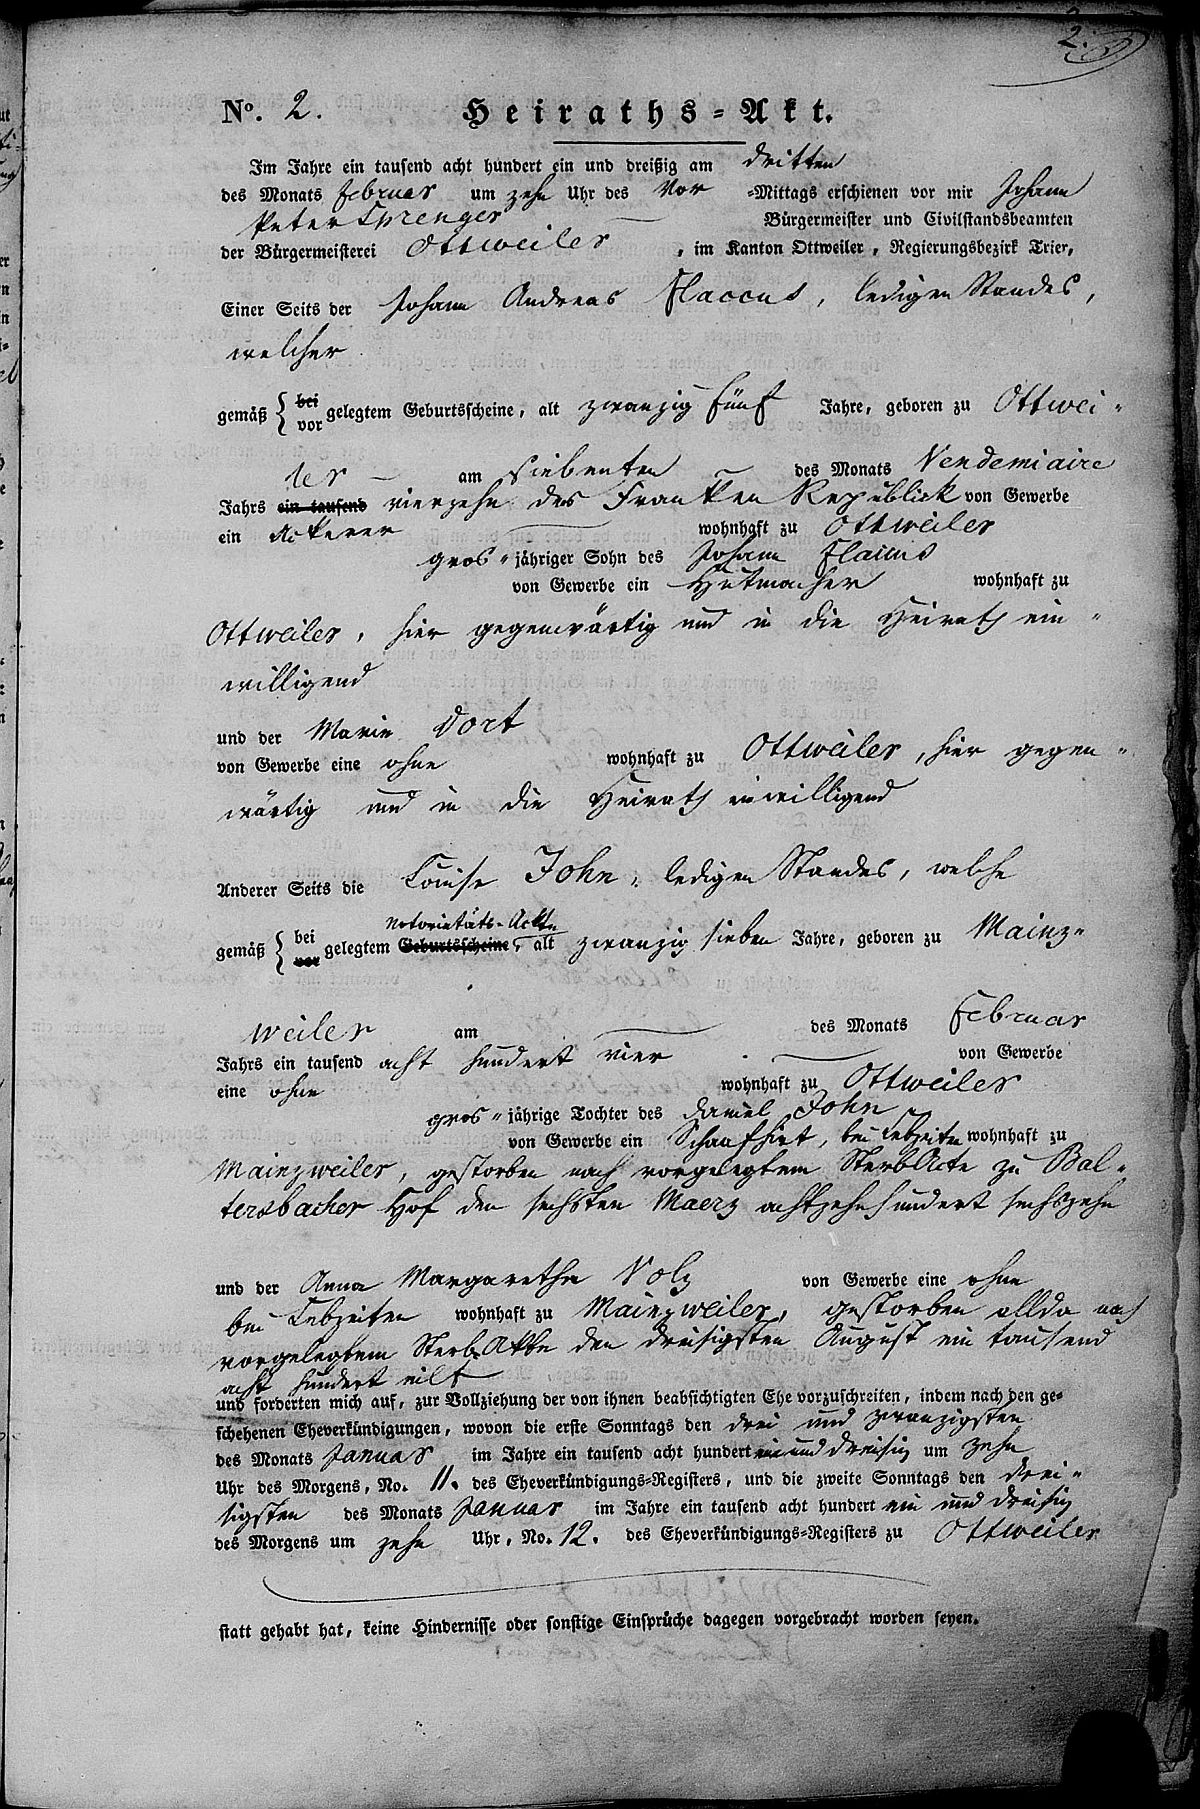 2.
No. 2. Heiraths-Akt.
Im Jahre ein tausend acht hundert ein und dreißig am dritten
des Monats Februar um zehn Uhr des Vor -Mittags erschienen vor mir Johann
Peter Bürgermeister und Civilstandsbeamten
der Bürgermeisterei Ottweiler, im Kanton Ottweiler, Regierungsbezirk Trier,
Einer Seits der Johann Andreas Flaccus, ledigen Standes,
welcher
gemäß { bei vor gelegtem Geburtsscheine, alt zwanzig fünf Jahre, geboren zu Ottwei-
ler am siebenten des Monats Vendemiaire
Jahrs ein tausend vierzehn der Franken Republick von Gewerbe
ein Ackerer wohnhaft zu Ottweiler
gros-jähriger Sohn des Johann Flaccus
von Gewerbe ein Hutmacher wohnhaft zu
Ottweiler, hier gegenwärtig und in die Heirath ein-
willigend
und der Marie Dort
von Gewerbe eine ohne wohnhaft zu Ottweiler, hier gegen-
wärtig und in die Heirath einwilligend
Anderer Seits die Louise John, ledigen Standes, welche
Notorietäts-Akte
gemäß { bei vor gelegtem Geburtsscheine, alt zwanzig sieben Jahre, geboren zu Mainz-
weiler am des Monats Februar
Jahrs ein tausend acht hundert vier von Gewerbe
eine ohne wohnhaft zu Ottweiler
gros-jährige Tochter des Daniel John
von Gewerbe ein Schaafhirt, bei Lebzeiten wohnhaft zu
Mainzweiler, gestorben nach vorgelegtem SterbActe zu Bal-
tersbacher Hof den sechsten Maerz achtzehnhundert sechszehn
und der Anna Margaretha Volz von Gewerbe eine ohne
bei Lebzeiten wohnhaft zu Mainzweiler, gestorben allda nach
vorgelegtem Sterb-Akte den dreisigsten August ein tausend
acht hundert eilf
und forderten mich auf, zur Vollziehung der von ihnen beabsichtigten Ehe vorzuschreiten, indem nach den ge-
schehenen Eheverkündigungen, wovon die erste Sonntags den drei und zwanzigsten
des Monats Januar im Jahre ein tausend acht hundert ein und dreisig um zehn
Uhr des Morgens, No. 11. des Eheverkündigungs-Registers, und die zweite Sonntags den drei-
sigsten des Monats Januar im Jahre ein tausend acht hundert ein und dreisig
des Morgens um zehn Uhr, No. 12. des Eheverkündigungs-Registers zu Ottweiler
statt gehabt hat, keine Hindernisse oder sonstige Einsprüche dagegen vorgebracht worden seyen.